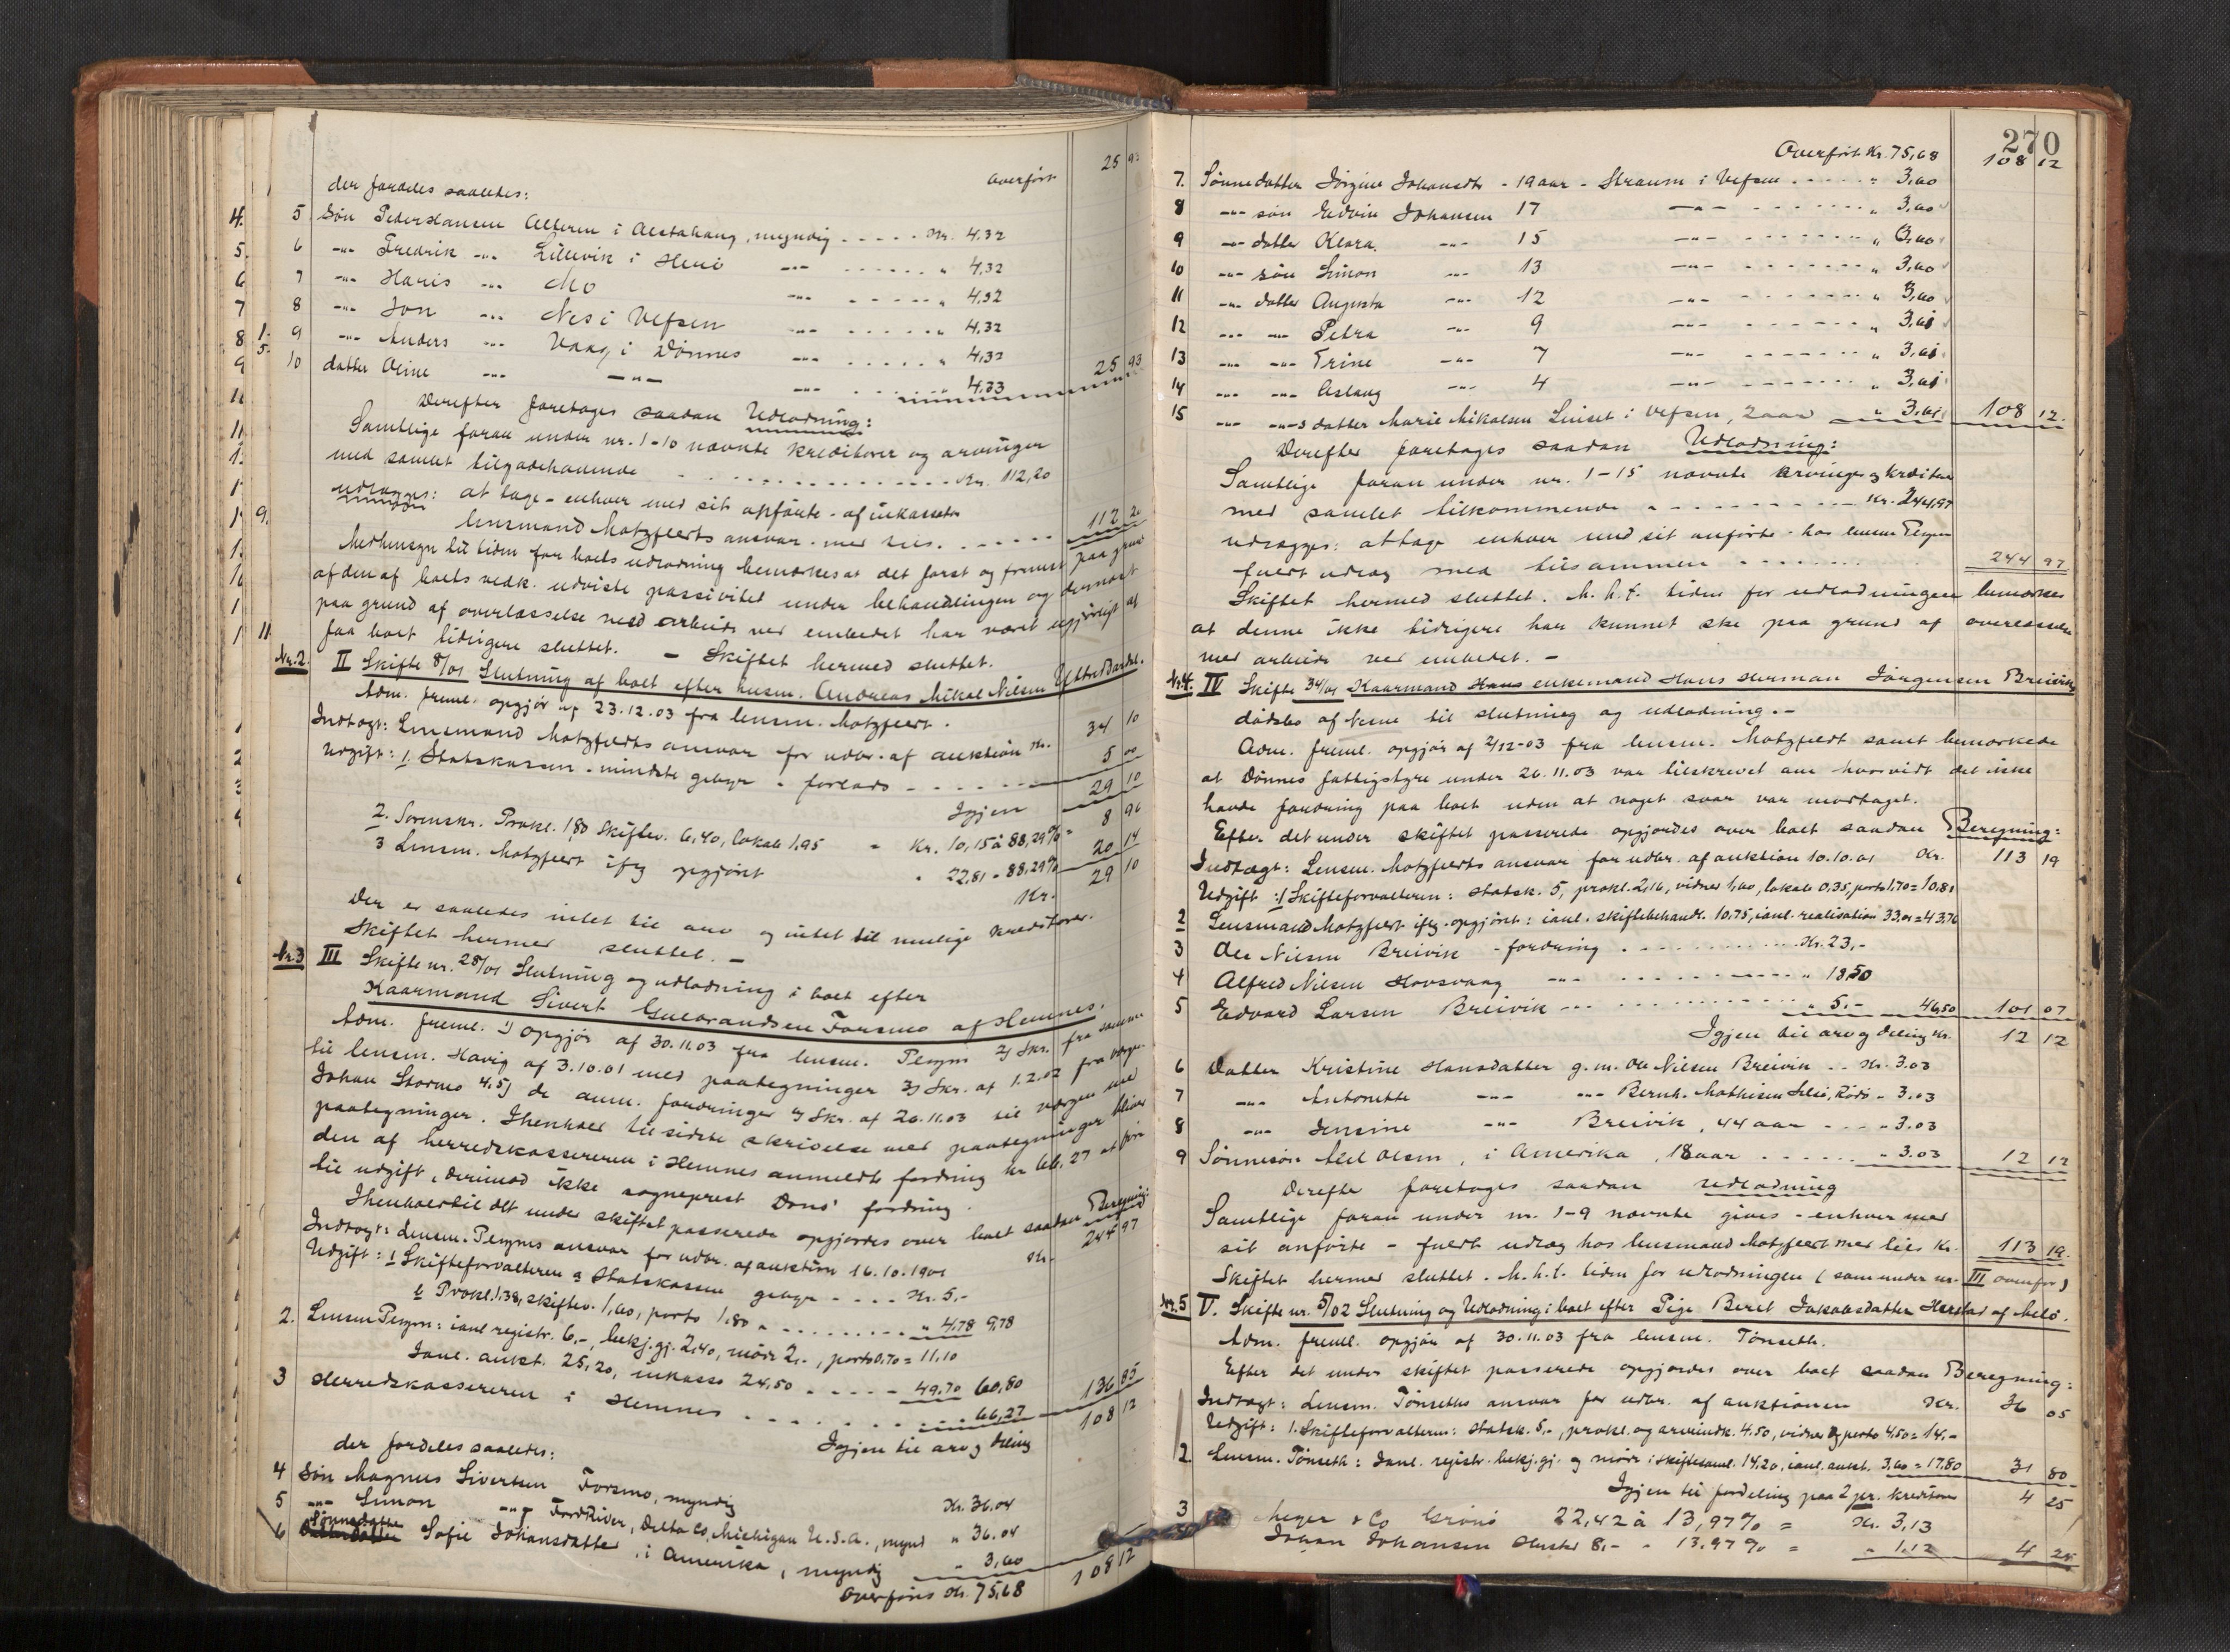 Overført 25 93
der fordeles saaledes:
5 Søn Peder Hansen Alteren i Alstahaug, myndig . . . . . Kr. 4,32
6 -"- Fredrik -"- Lillevik i Herø -"- . . . . . . " 4,32
7 -"- Hans -"- Mo -"- . . . . . " 4,32
8 -"- Jon -"- Nes i Vefsen -"- . . . . . " 4,32
9 -"- Anders -"- Vaag i Dønnes -"- . . . . . " 4,32
10 datter Oline -"- -"- -"- . . . . . " 4,33 25 93
Derefter foretages saadan Udlodning:
Samtlige foran under nr. 1-10 nævnte kreditorer og arvinger
med samlet tilgodehavende . . . . . . . Kr. 112,20
udlægges: at tage - enhver med sit opførte - af inkasserte
lensmand Motzfeldts ansvar med tils. . . . . . . 112 20
Medhensyn til tiden for boets udlodning bemærkes at det først og fremst paa grund
af den af boets vedk. udviste passivitet under behandlingen og dernæst
paa grund af overlæsselse med arbeide ved embedet har været ugjørligt at
faa boet tidligere sluttet. - Skiftet hermed sluttet.
Nr. 2. II Skifte 8/01 Slutning af boet efter husm. Andreas Mikal Nilsen Ytre Dardal.
Adm. freml. opgjør af 23.12.03 fra lensm. Motzfeldt.
Indtægt: Lensmand Motzfeldts ansvar for udbr. af auktion Kr. 34 10
Udgift: 1. Statskassen - mindste gebyr - forlods . . . . . 5 00
Igjen 29 10
2. Sorenskr. Prokl. 1,80 Skiftev. 6,40, lokale 1,95 = Kr. 10,15 à 88,29% = 8 96
3 Lensm. Motzfeldt iflg opgjøret " 22,81 - 88,29% 20 14
Kr. 29 10
Der er saaledes intet til arv og intet til mulige kreditorer.
Skiftet hermed sluttet. -
Nr. 3 III Skifte nr. 28/01 Slutning og udlodning i boet efter
Kaarmand Sivert Gulbrandsen Forsmo af Hemnes.
Adm. freml. 1) opgjør af 30.11.03 fra lensm. Pleym 2) Skr. fra samme
til lensm. Havig af 3.10.01 med paategninger 3) Skr. af 1.2.02 fra værge
Johan Stormo 4. 5) de anm. fordringer 6) Skr. af 20.11.03 til værgen med
paategninger. Ihenhold til sidste skrivelse med paategninger bliver
den af herredskassereren i Hemnes anmeldte fordring kr 66,27 at føre
til udgift, derimod ikke sogneprest Dons' fordring.
Ihenhold til det under skiftet passerede opgjordes over boet saadan Beregning:
Indtægt: Lensm. Pleyms ansvar for udbr. af auktion 16.10.1901 Kr. 244 97
Udgift: 1 Skifteforvalteren a Statskassen gebyr . . . . Kr. 5,-
b Prokl. 1,38, skiftev. 1,60, porto 1,80 = . . . . . . . " 4,78 9,78
2. Lensm Pleym: ianl registr. 6,-, bekj.gj. 2,40, møde 2,-, porto 0,70 = 11,10
Ianl. aukt. 25,20, inkasso 24,50 . . . . . 49,70 60,80
3 Herredskassereren i Hemnes . . . . . . . 66,27 136 85
Igjen til arv og deling 108 12
der fordeles saaledes:
4 Søn Magnus Sivertsen Forsmo, myndig Kr. 36.04
5 -"- Simon -"- Ford River, Delta Co, Michigan U.S.A., mynd " 36.04
6 Sønnedatter Sofie Johansdatter, i Amerika, myndig " 3,60 108 12
Overføres Kr. 75,68
270
Overført Kr. 75,68 108 12
7. Sønnedatter Jørgine Johansdtr - 19 aar - Straum i Vefsen . . . . . " 3,60
8 -"- søn Edvin Johansen 17 -"- . . . . . . " 3,60
9 -"- datter Klara -"- 15 -"- . . . . . . " 3,60
10 -"- søn Simon -"- 13 -"- . . . . . . " 3,60
11 -"- datter Augusta -"- 12 -"- . . . . . . " 3,60
12 -"- -"- Petra -"- 9 -"- . . . . . . " 3,61
13 -"- -"- Trine -"- 7 -"- . . . . . . " 3,61
14 -"- -"- Aslaug -"- 4 -"- . . . . . . " 3,61
15 -"- -"-s datter Marie Mikalsen Luset i Vefsen, 2 aar " 3,61 108 12.
Derefter foretages saadan Udlodning:
Samtlige foran under nr. 1-15 nævnte arvinger og kreditorer
med samlet tilkommende . . . . . . . Kr. 244,97
udlægges: at tage enhver med sit anførte - hos lensm Pleym
fuldt udlæg med tilsammen . . . . . . . 244 97
Skiftet hermed sluttet. M.h.t. tiden for udlodningen bemærkes
at denne ikke tidligere har kunnet ske paa grund af overlæsselse
med arbeide ved embedet. -
Nr. 4. IV Skifte 34/01 Kaarmand Hans enkemand Hans Herman Jørgensen Breiviks
dødsbo af Nesne til slutning og udlodning. -
Adm. freml. opgjør af 2/12-03 fra lensm. Motzfeldt samt bemærkede
at Dønnes fattigstyre under 26.11.03 var tilskrevet om hvorvidt det ikke
havde fordring paa boet uden at noget svar var modtaget.
Efter det under skiftet passerede opgjordes over boet saadan Beregning:
Indtægt: Lensm. Motzfeldts ansvar for udbr. af auktion 10.10.01 Kr. 113 19
Udgift: 1 Skifteforvalteren: statsk. 5, prokl. 2,16, vidner 1,60, lokale 0,35, porto 1,70 = 10,81
2 Lensmand Motzfeldt iflg. opgjøret: ianl. skiftebehandl. 10,75, ianl. realisation 33,01 = 43,76
3 Ole Nilsen Breivik - fordring . . . . . . . Kr. 23,-
4 Alfred Nilsen Hovsvaag -"- . . . . . . . " 18,50
5 Edvard Larsen Breivik -"- . . . . . . . " 5.- 46,50 101 07
Igjen til arv og deling Kr. 12 12
6 Datter Kristine Hansdatter g.m. Ole Nilsen Breivik . . Kr. 3.03
7 -"- Antonette -"- -"- Bernh. Mathisen Selsø, Rødø - 3.03
8 -"- Jensine -"- Breivik, 44 aar - - - " 3.03
9 Sønnesøn Abel Olsen, i Amerika, 18 aar . . . . . . " 3.03 12 12
Derefter foretages saadan udlodning
Samtlige foran under nr. 1-9 nævnte gives - enhver med
sit anførte - fuldt udlæg hos lensmand Motzfeldt med tils Kr. 113 19.
Skiftet hermed sluttet. M.h.t. tiden for udlodningen (som under nr. III ovenfor)
Nr. 5 V. Skifte nr. 5/02 Slutning og Udlodning i boet efter Pige Beret Jakobsdatter Herstad af Melø.
Adm. freml. opgjør af 30.11.03 fra lensm. Tønseth.
Efter det under skiftet passerede opgjordes over boet saadan Beregning:
Indtægt: Lensm. Tønseths ansvar for udbr. af auktionen Kr. 36 05
Udgift: 1. Skifteforvalteren: statsk. 5,-, prokl. og arveindk. 4.50, vidner og porto 4.50 = 14.-
2. Lensm. Tønseth: Ianl. registr. bekj.gj. og møde i skiftesaml. 14.20, ianl. aukt. 3,60 = 17.80 31 80
Igjen til fordeling paa 2 pr. kreditorer 4 25
3 Meyer & Co Grønø 22,42 à 13,97% = Kr. 3,13
Johan Johansen 8.- " 13.97% = " 1.12 4 25